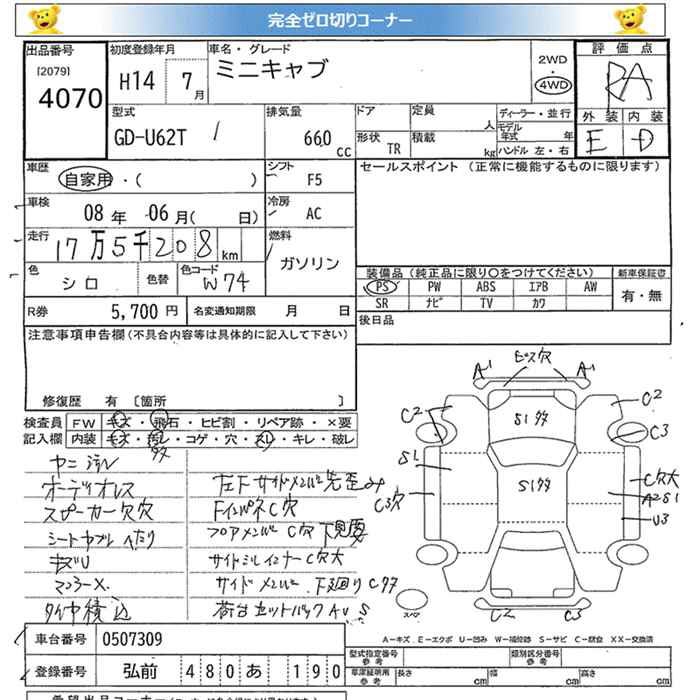 完全ゼロ切りコーナー
出品番号
[2079]
4070
初度登録年月
H14 7月
車名・グレード
ミニキャブ
2WD・4WD
評価点
RA
外装 内装
E D
型式
GD-U62T
排気量
660 cc
ドア
定員 人
ディーラー・並行
モデル年式 年
ハンドル 左・右
形状
TR
積載 kg
車歴
自家用・( )
シフト
F5
セールスポイント (正常に機能するものに限ります)
車検
08年 06月( 日)
冷房
AC
走行
17万5千208km
燃料
ガソリン
色
シロ
色替
色コード
W74
装備品 (純正品に限り○をつけてください)
新車保証書
PS PW ABS エアB AW
SR ナビ TV カワ
有・無
R券 5,700円
名変通知期限 月 日
後日品
注意事項申告欄(不具合内容等は具体的に記入して下さい)
修復歴 有 [箇所 ]
検査員記入欄
FW キズ・飛石・ヒビ割・リペア跡・×要
内装 キズ・汚レ・コゲ・穴・スレ・キレ・破レ
ヤニ汚レ
オーディオレス
スピーカー欠穴
マフラーX
タイヤ積込
左Fサイドメンバー先歪み
FインパネC穴
フロアメンバーC穴 下見要
サイドシルインナーC穴大
サイドメンバー 下廻りC多
A1 ビス穴 A1
C2 C2
S1多
C3
S1
S1多
C穴大
C3穴
A2S1
U3
スペア
C2 C3
A-キズ E-エクボ U-凹み W-補修跡 S-サビ C-腐食 XX-交換済
車台番号 0507309
登録番号 弘前 480 あ 190
型式指定番号 参考
類別区分番号 参考
車庫証明用 参考
長さ cm 幅 cm 高さ cm